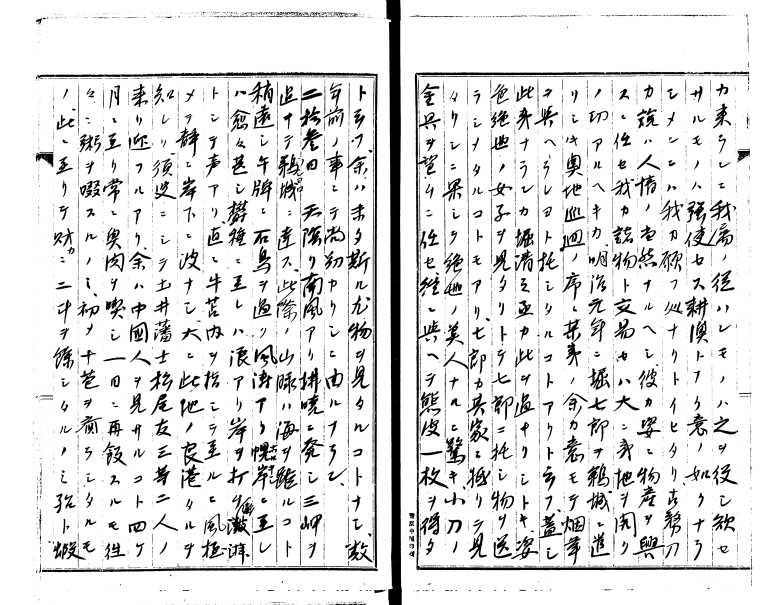 カ東ラレ我属ノ従ハレモノハ之ヲ役シ欲セ
サルモノハ強使セス耕漁トアタ意ノ如クナラ
シメンニハ我カ願フ処ナリトイヒタリ
カ説ハ人情ノ当然ナルヘシ彼カ姿ニ物産ヲ興
スニ任セ我カ諸物ト交易セハ大ニ我地ヲ開ク
ノ功アルヘキカ明治元年ニ堀七郎ヲ鵜城ニ進
リシキ奥地巡廻ノ序ニ某弟ノ余カ意モテ烟草
ヲ与ヘラレヨト托シタルコトアリト云フ蓋シ
此身ナランカ堀清三亟カ此ヲ過キリシトキ姿
色絶世ノ女子ヲ見タリトテ七郎ニ托シ物ヲ送
ラシメタルコトモアリ七郎カ其家ニ抵リテ見
タリシニ果シテ絶世ノ美人ナルニ驚キ小刀ノ
金具ヲ望ムニ任セ組ニ与ヘテ熊皮一枚ヲ得タ
ト云フ余ハ未タ斯ル尤物ヲ見タルコトナシ数
年前ノ事ニテ尚幼カリシニ由ルナラン
二拾参日 天陰リ南風アリ払暁ニ発シ三岬ヲ
追サテ鵜城ニ達ス此際ノ山脉ハ海ヲ距ルコト
稍遠シ午牌ニ石鳥ヲ過ク風濤アリ幌岸ニ至レ
ハ愈々甚シ欝種ニ至レハ浪アリ岸ヲ打ツ
トシテ声アリ直ニ牛苫内ヲ指シテ至ルニ風極
メテ静ニ岸下ニ波ナシ大ニ此地ノ良港タルヲ
知レリ須臾ニシテ土井藩士松尾友三等二人ノ
来リ迎フルアリ余ハ中國人ヲ見サルコト四ケ
月ニ互リ常ニ魚肉ヲ喫シ一日ニ再飯スルモ往
々ニ粥ヲ啜スルノミ初メ十苞ヲ齎ラシタルモ
ノ此ニ至リテ財カニ二斗ヲ餘シタルノミ殆ト蝦